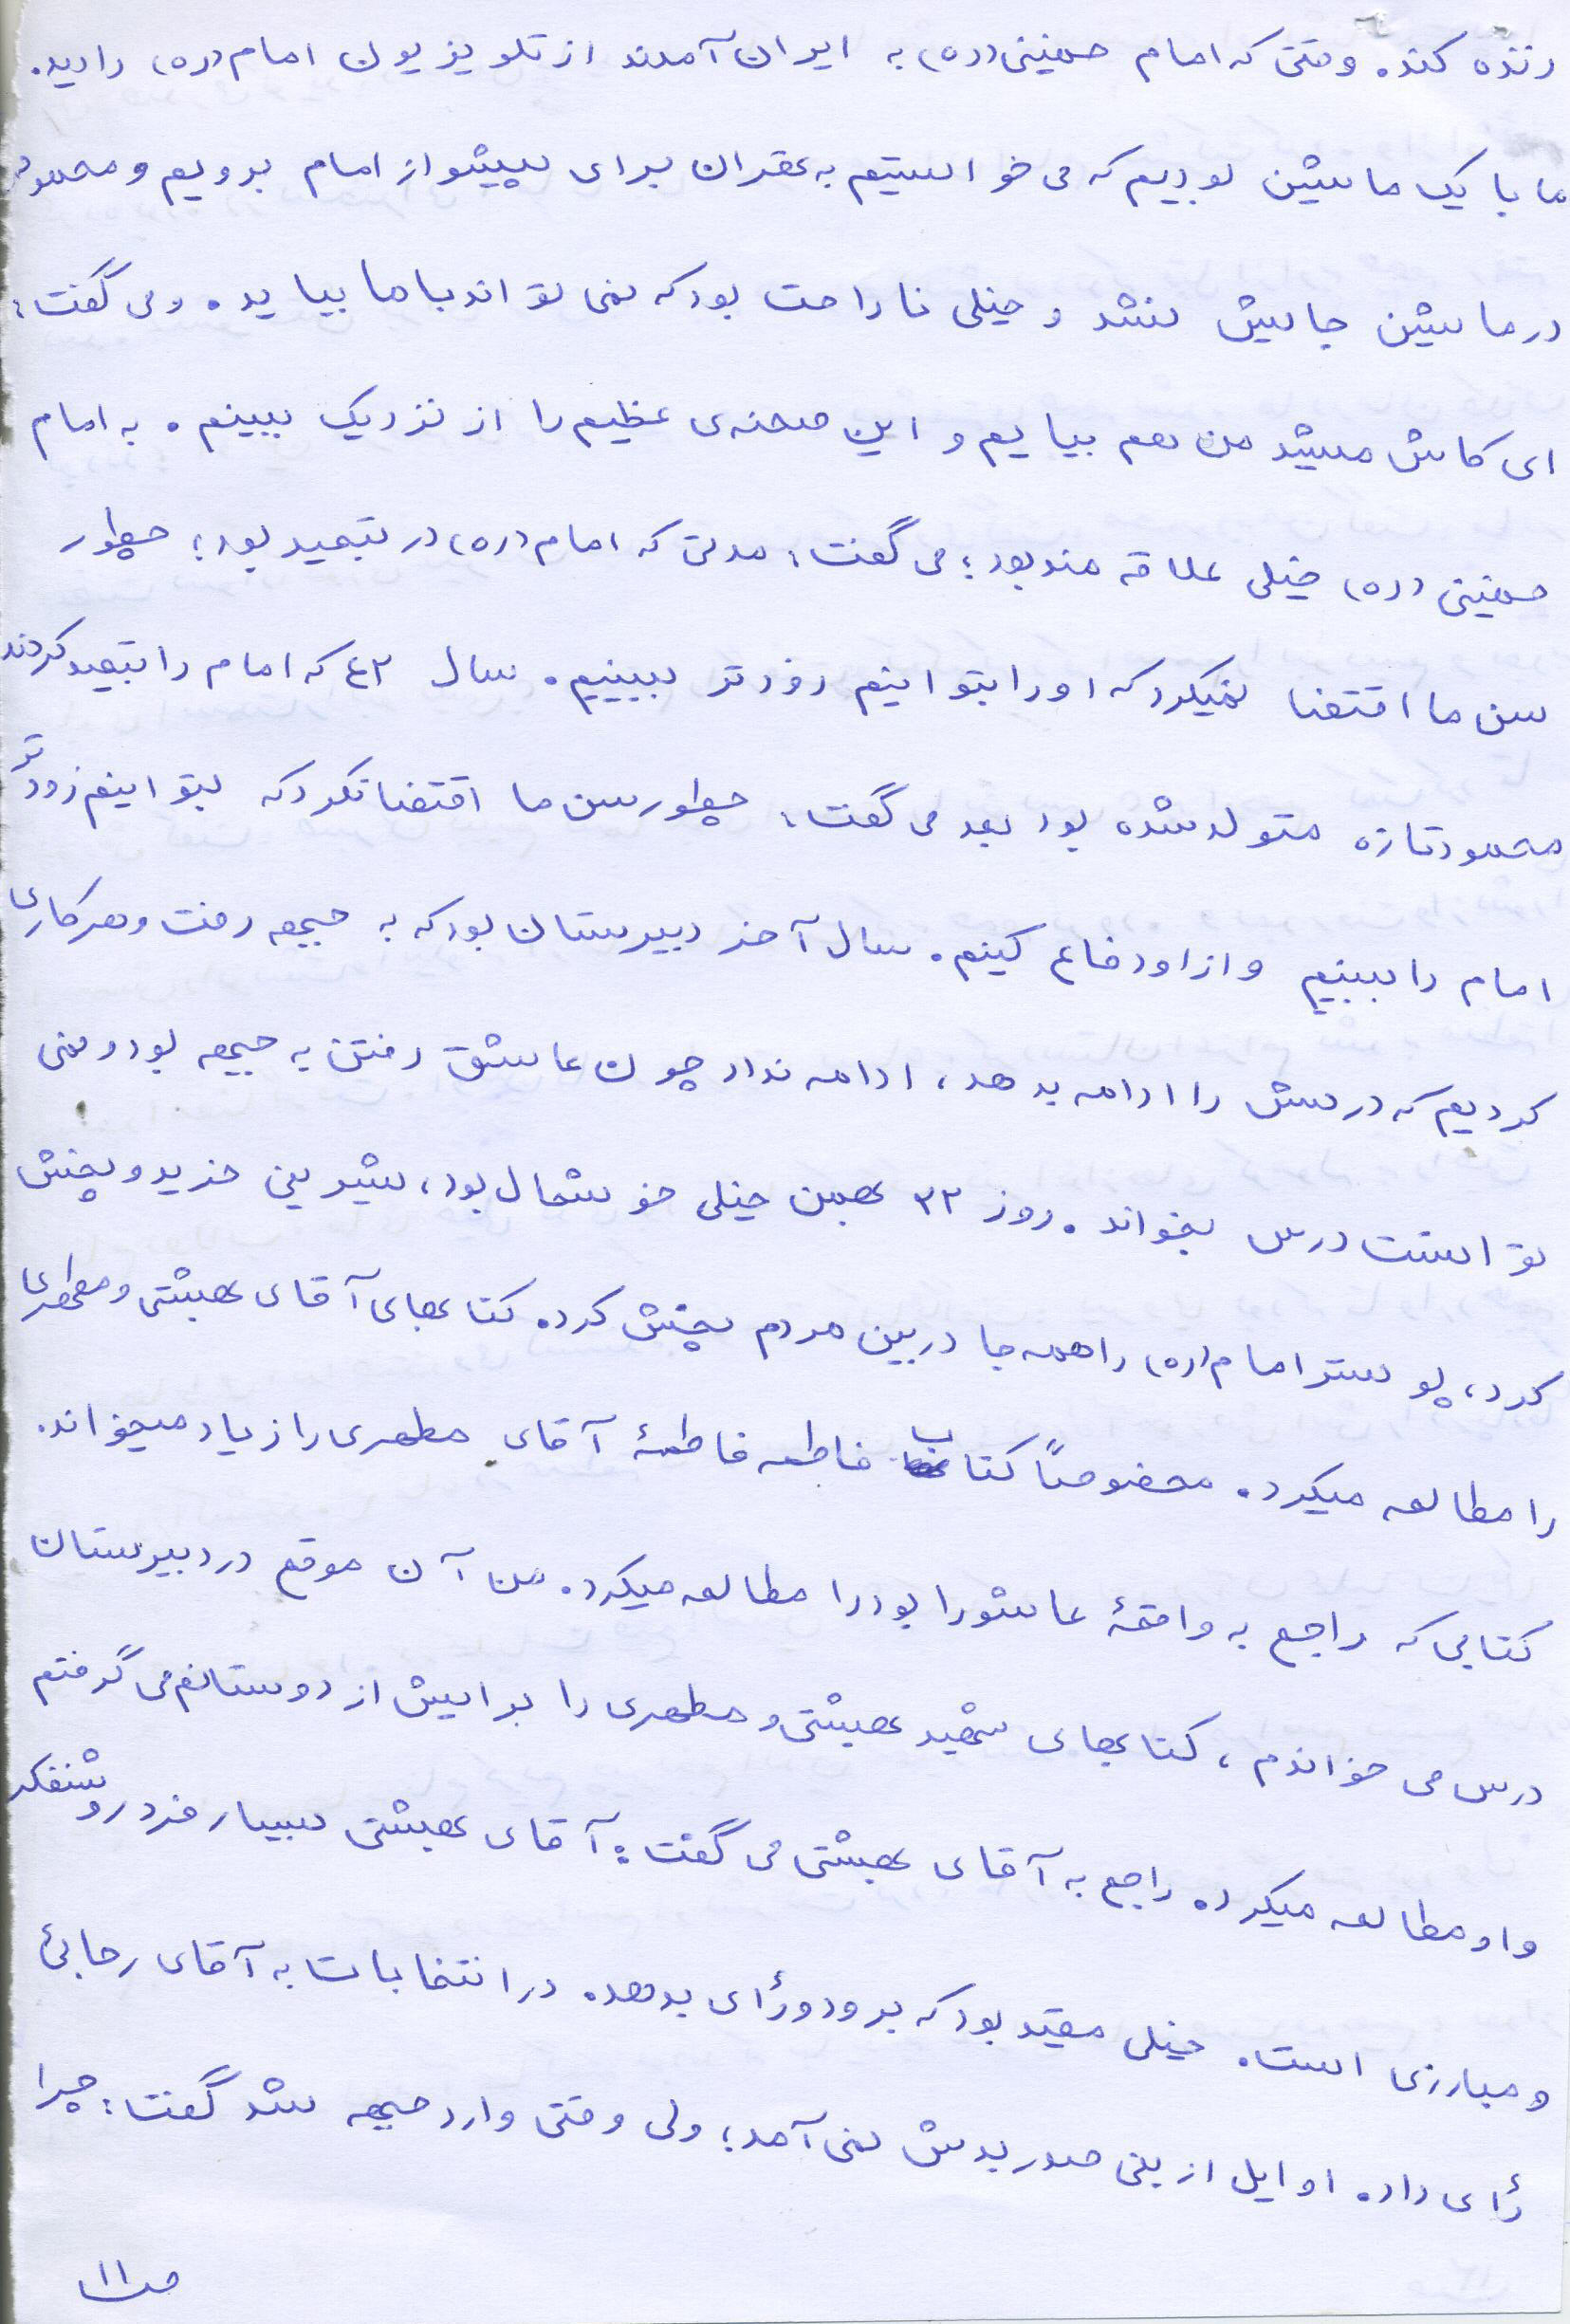 زنده کند. وقتی که امام خمینی (ره) به ایران آمدند از تلویزیون امام (ره) را دید.
ما با یک ماشین بودیم که می خواستیم به تهران برای پیشواز امام برویم و محمود
در ماشین جایش نشد و خیلی ناراحت بود که نمی تواند با ما بیاید. و می گفت:
ای کاش میشد من هم بیایم و این صحنه‌ی عظیم را از نزدیک ببینم. به امام
خمینی (ره) خیلی علاقه مند بود؛ می گفت: مدتی که امام (ره) در تبعید بود؛ چطور
سن ما اقتضا نمیکرد که او را بتوانیم زودتر ببینیم. سال ۴۲ که امام را تبعید کردند
محمود تازه متولد شده بود بعد می گفت: چطور سن ما اقتضا نکرد که بتوانیم زودتر
امام را ببینیم و از او دفاع کنیم. سال آخر دبیرستان بود که به جبهه رفت و هر کاری
کردیم که درسش را ادامه بدهد، ادامه نداد چون عاشق رفتن به جبهه بود و نمی
توانست درس بخواند. روز ۲۲ بهمن خیلی خوشحال بود، شیرینی خرید و پخش
کرد، پوستر امام (ره) را همه جا در بین مردم پخش کرد. کتابهای آقای بهشتی و مطهری
را مطالعه میکرد. مخصوصاً کتاب فاطمه فاطمهٔ آقای مطهری را زیاد میخواند.
کتابی که راجع به واقعهٔ عاشورا بود را مطالعه میکرد. من آن موقع در دبیرستان
درس می خواندم، کتابهای شهید بهشتی و مطهری را برایش از دوستانم می گرفتم
و او مطالعه میکرد. راجع به آقای بهشتی می گفت: آقای بهشتی بسیار فرد روشنفکر
و مبارزی است. خیلی مقیّد بود که برود و رأی بدهد. در انتخابات به آقای رجائی
رأی داد. اوایل از بنی صدر بدش نمی آمد؛ ولی وقتی وارد جبهه شد گفت: چرا
ص ۱۱